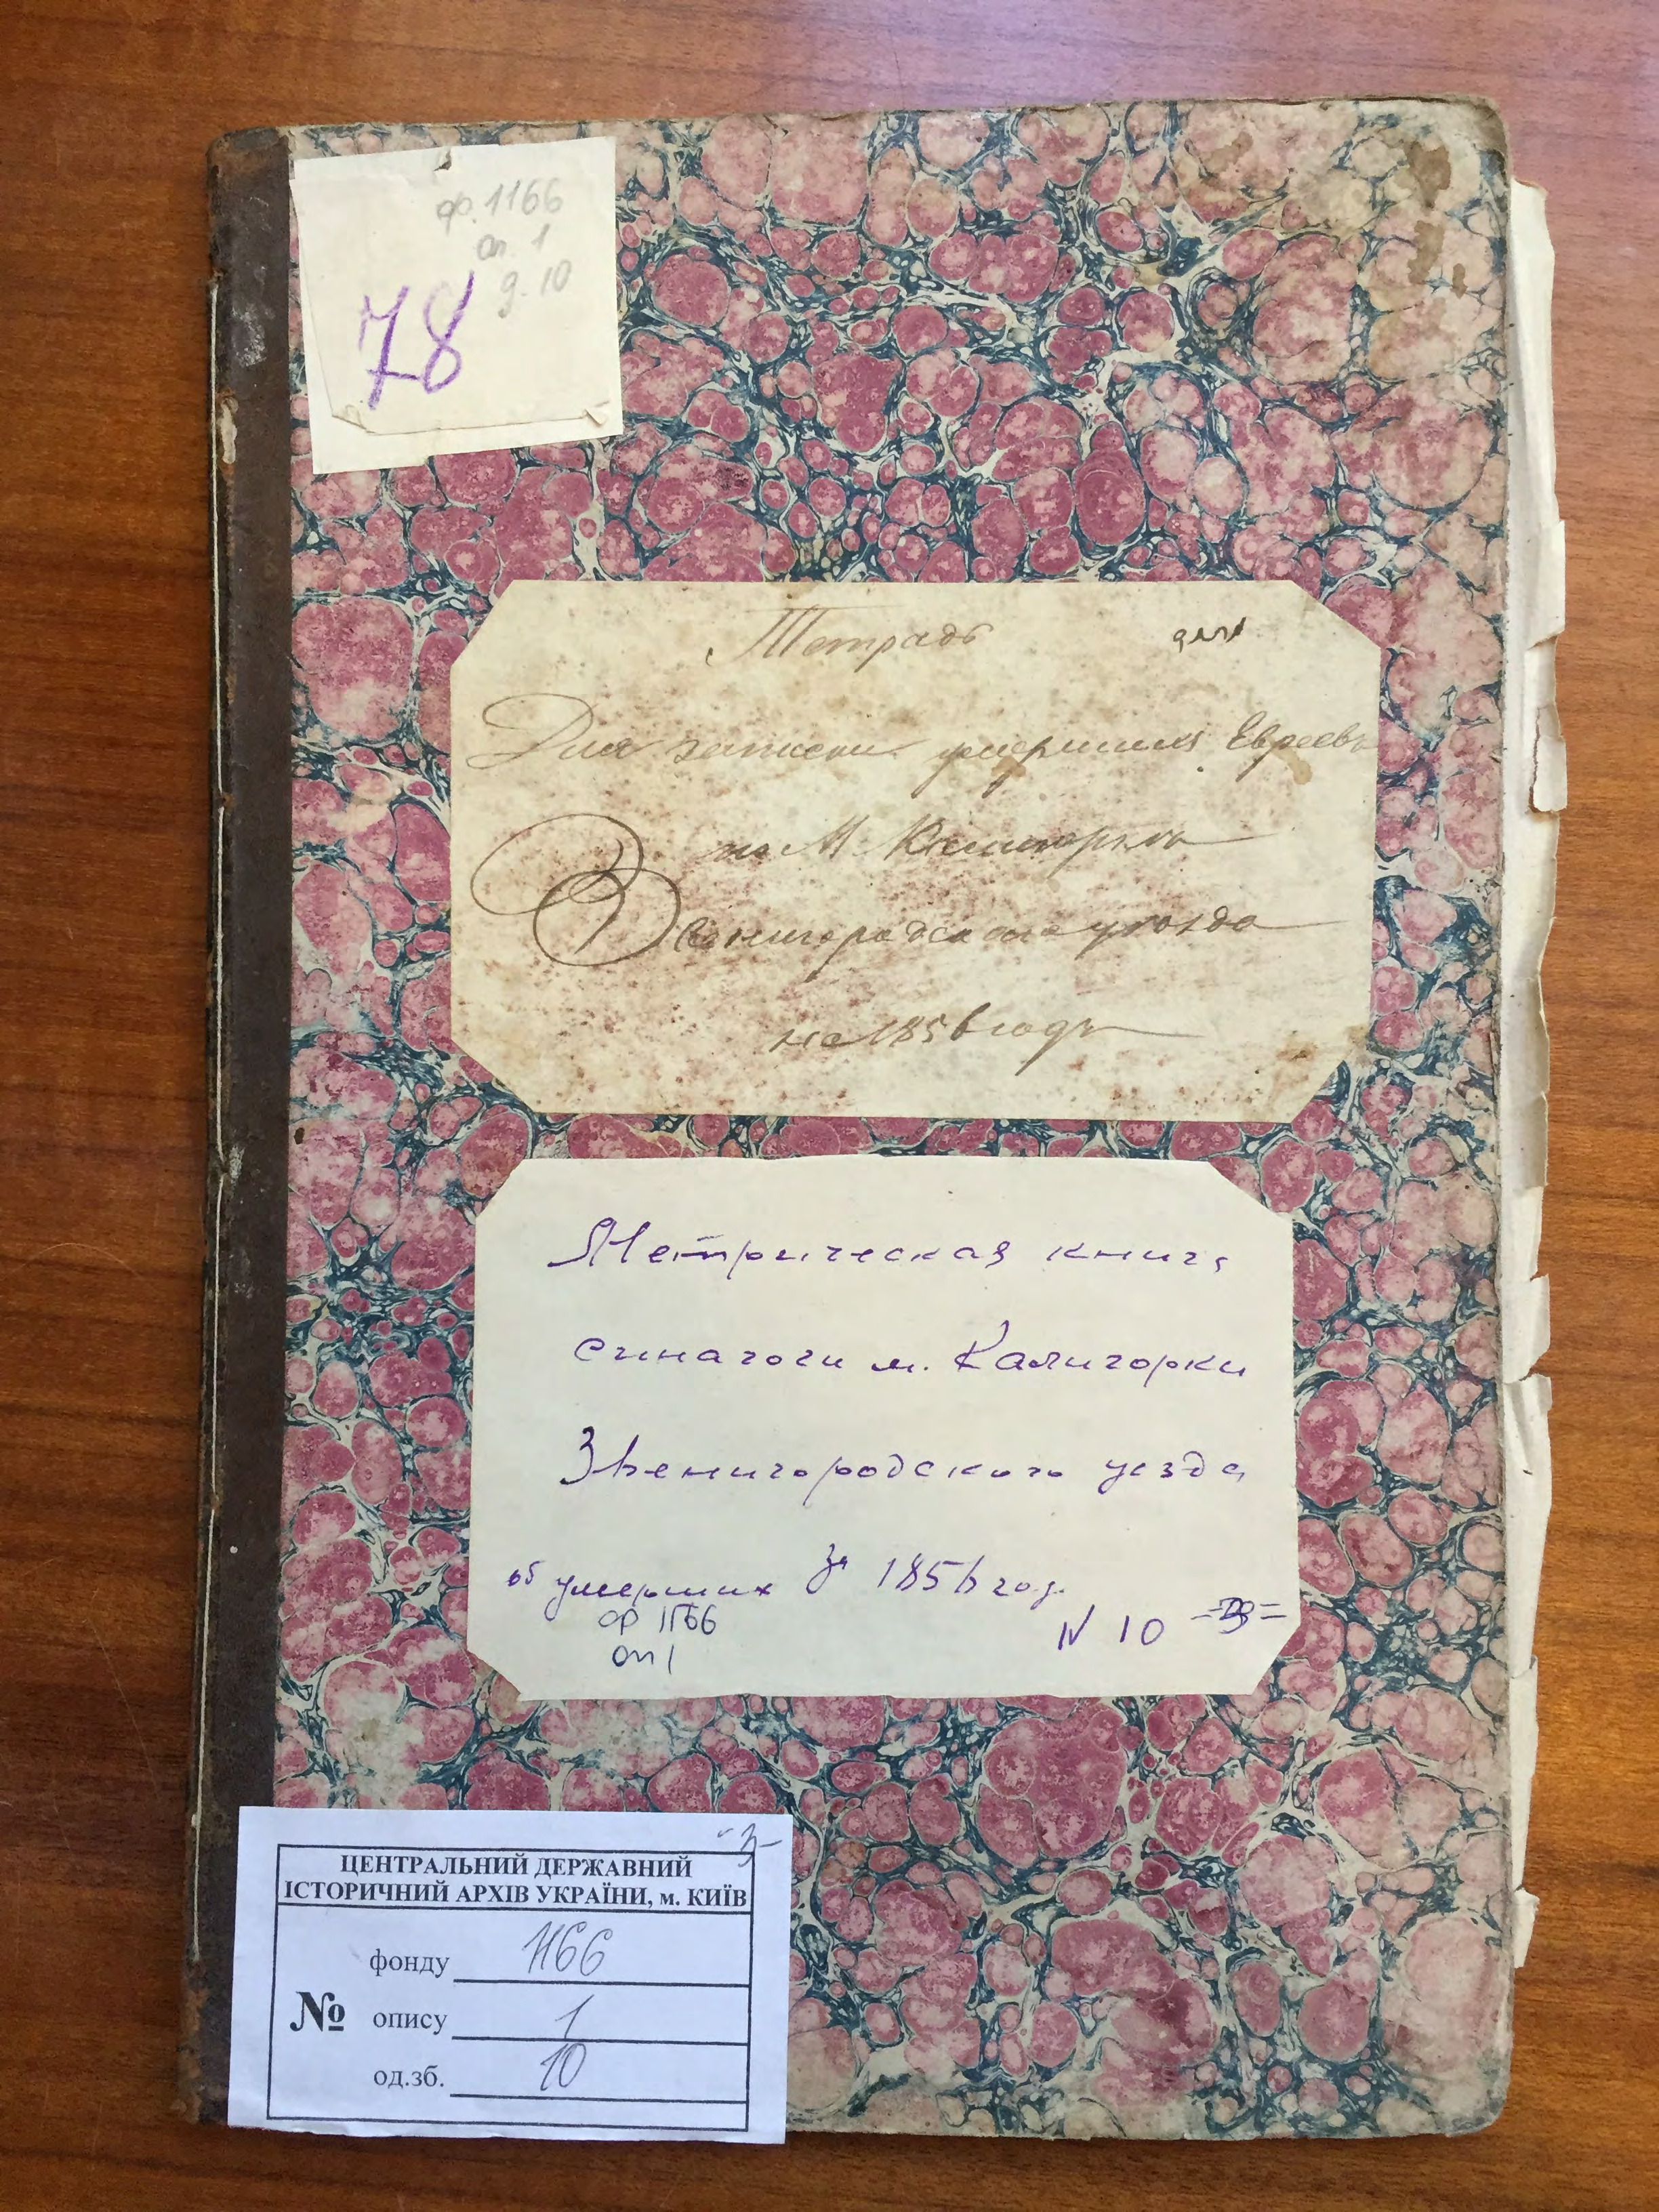 ф. 1166
оп. 1
д. 10
78
Тетрадь
Для записки умершихъ Евреевъ
по М Калигоркѣ
Звенигородского уѣзда
на 1856 годъ
Метрическая книга
синагоги м. Калигорки
Звенигородского уезда
об умерших за 1856 год.
ф 1166
оп 1
N 10
-3-
ЦЕНТРАЛЬНИЙ ДЕРЖАВНИЙ
ІСТОРИЧНИЙ АРХІВ УКРАЇНИ, м. КИЇВ
фонду 1166
№ опису 1
од.зб. 10